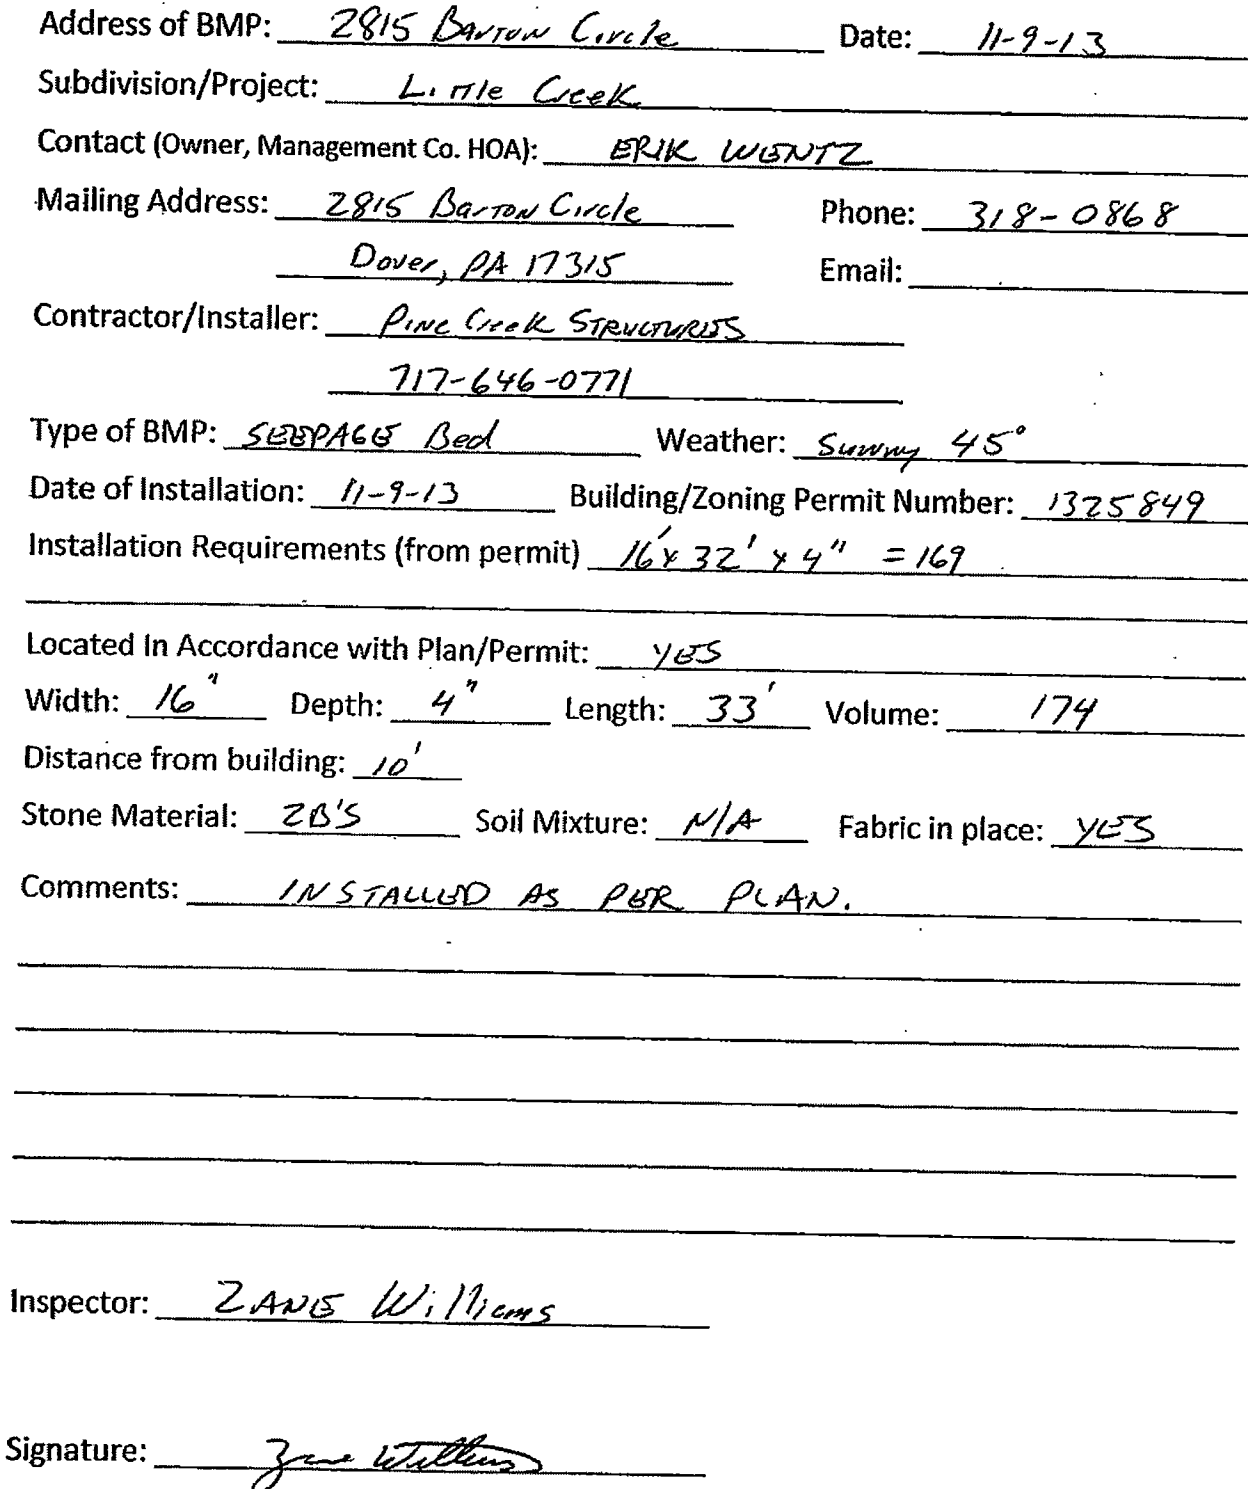 Address of BMP: 2815 Barton Circle Date: 11-9-13
Subdivision/Project: Little Creek
Contact (Owner, Management Co. HOA): ERIK WENTZ
Mailing Address: 2815 Barton Circle Phone: 318-0868
Dover, PA 17315 Email:
Contractor/Installer: Pine Creek STRUCTURES
717-646-0771
Type of BMP: SEEPAGE Bed Weather: Sunny 45°
Date of Installation: 11-9-13 Building/Zoning Permit Number: 1325849
Installation Requirements (from permit) 16' x 32' x 4" = 169
Located In Accordance with Plan/Permit: YES
Width: 16" Depth: 4" Length: 33' Volume: 174
Distance from building: 10'
Stone Material: 2B'S Soil Mixture: N/A Fabric in place: YES
Comments: INSTALLED AS PER PLAN.
Inspector: ZANE Williams
Signature: Zane Williams